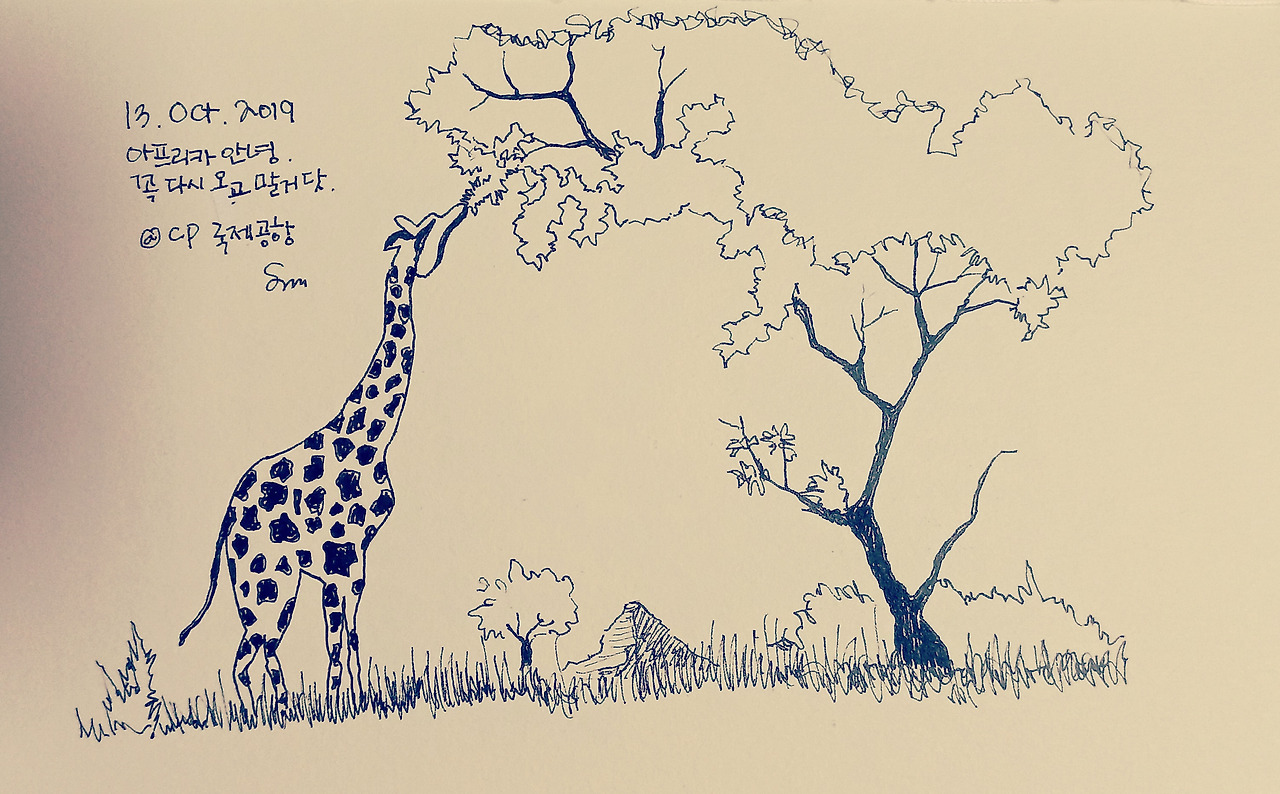 13. Oct. 2019
아프리카 안녕.
꼭 다시 오고 말거닷.
@ CP 국제공항